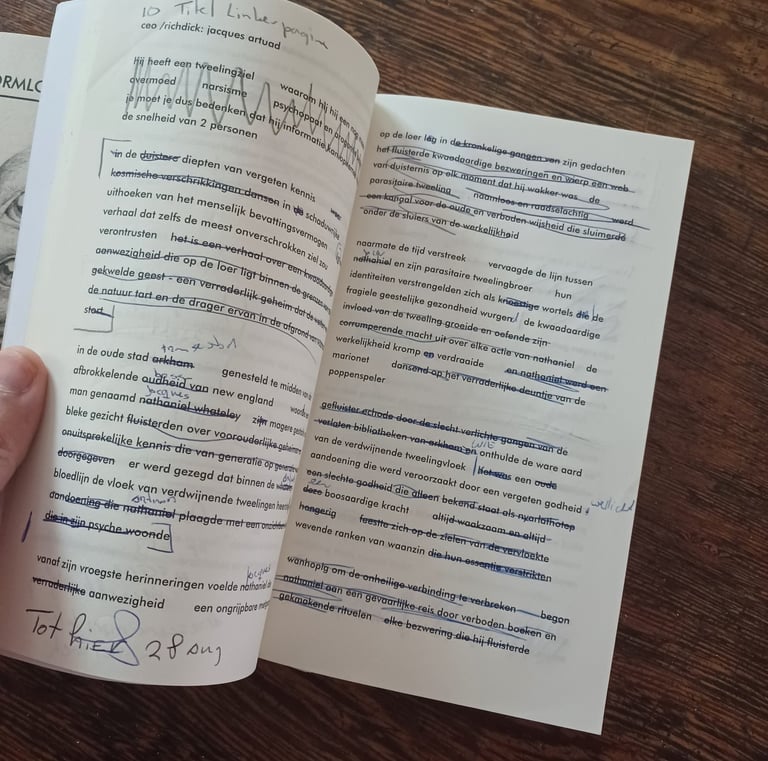 ORMLO
10 Titel Linker pagina
ceo /richdick: jacques artuad
hij heeft een tweelingziel waarom hij hij een
overmoed narsisme psychopaat en
je moet je dus bedenken dat hij informatie
de snelheid van 2 personen
in de duistere diepten van vergeten kennis
kosmische verschrikkingen dansen in de
uithoeken van het menselijk bevattingsvermogen
verhaal dat zelfs de meest onverschrokken ziel zou
verontrusten het is een verhaal over een
aanwezigheid die op de loer ligt binnen de grenzen
gekwelde geest - een verraderlijk geheim dat de
de natuur tart en de drager ervan in de afgrond
stort
in de oude stad arkham genesteld te midden van
afbrokkelende oudheid van new england
jacques
man genaamd nathaniel whateley zijn magere
bleke gezicht fluisterden over voorouderlijke
onuitsprekelijke kennis die van generatie op
doorgegeven er werd gezegd dat binnen de
bloedlijn de vloek van verdwijnende tweelingen
aandoening die nathaniel plaagde met een
die in zijn psyche woonde
vanaf zijn vroegste herinneringen voelde nathaniel de
verraderlijke aanwezigheid een ongrijpbare
Tot hier 28 aug
op de loer lag in de kronkelige gangen van zijn gedachten
het fluisterde kwaadaardige bezweringen en wierp een web
van duisternis op elk moment dat hij wakker was de
parasitaire tweeling naamloos en raadselachtig werd
een kanaal voor de oude en verboden wijsheid die sluimerde
onder de sluiers van de werkelijkheid
naarmate de tijd verstreek vervaagde de lijn tussen
nathaniel en zijn parasitaire tweelingbroer hun
identiteiten verstrengelden zich als knoestige wortels die de
fragiele geestelijke gezondheid wurgen de kwaadaardige
invloed van de tweeling groeide en oefende zijn
corrumperende macht uit over elke actie van nathaniel de
werkelijkheid kromp en verdraaide en nathaniel werd een
marionet dansend op het verraderlijke deuntje van de
poppenspeler
gefluister echode door de slecht verlichte gangen van de
verlaten bibliotheken van arkham en onthulde de ware aard
van de verdwijnende tweelingvloek het was een oude
aandoening die werd veroorzaakt door een vergeten godheid
een slechte godheid die alleen bekend staat als nyarlathotep
deze boosaardige kracht altijd waakzaam en altijd
hongerig feestte zich op de zielen van de vervloekte
wevende ranken van waanzin die hun essentie verstrikten
wanhopig om de onheilige verbinding te verbreken begon
nathaniel aan een gevaarlijke reis door verboden boeken en
gekmakende rituelen elke bezwering die hij fluisterde